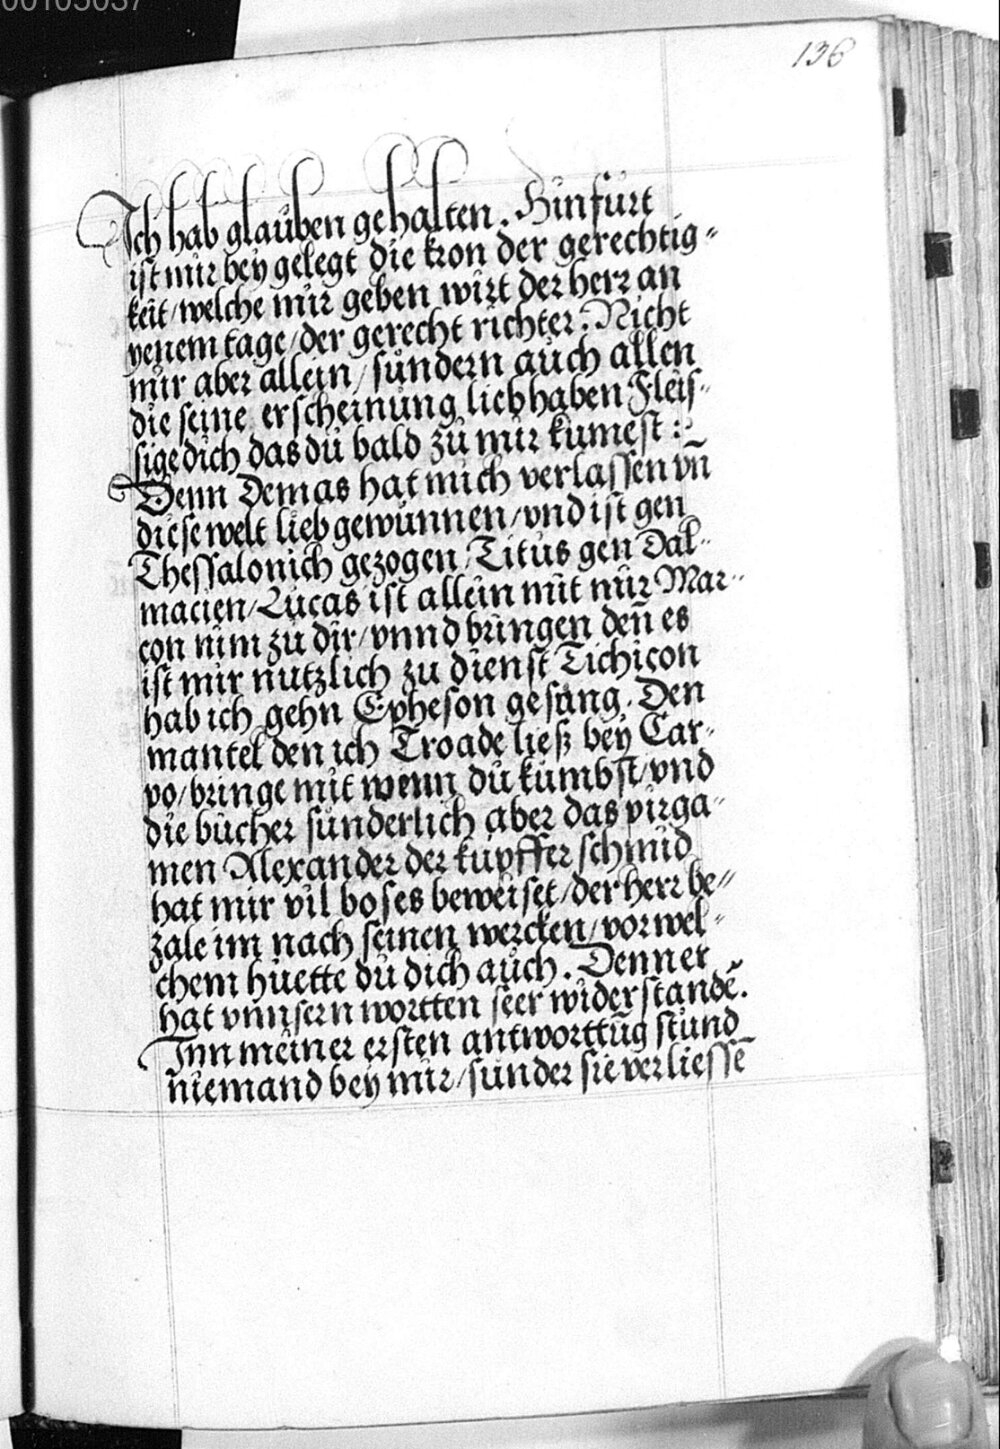 00105037
136
Ich hab glauben gehalten. Hinfurt
ist mir bey gelegt die kron der gerechtig=
keit/welche mir geben wirt der herr an
yenem tage/der gerecht richter. Nicht
mir aber allein/sundern auch allen
die seine erscheinung lieb haben Fleis=
sige dich das du bald zu mir kumest :~
Denn Demas hat mich verlassen vn
diese welt lieb gewunnen/vnd ist gen
Thessalonich gezogen/Titus gen Dal=
macien/Lucas ist allein mit mir Mar=
con nim zu dir/vnnd bringen den̄ es
ist mir nutzlich zu dienst Tichicon
hab ich gehn Epheson gesang. Den
mantel den ich Troade ließ bey Car=
po/bringe mit wenn du kumbst/vnd
die bucher sunderlich aber das pirga=
men Alexander der kupffer schmid
hat mir vil boses beweiset/der herr be=
zale im nach seinen wercken/vor wel=
chem huette du dich auch. Denn er
hat vnnsern wortten seer widerstandē.
Inn meiner ersten antworttūg stund
niemand bey mir/sunder sie verliessē